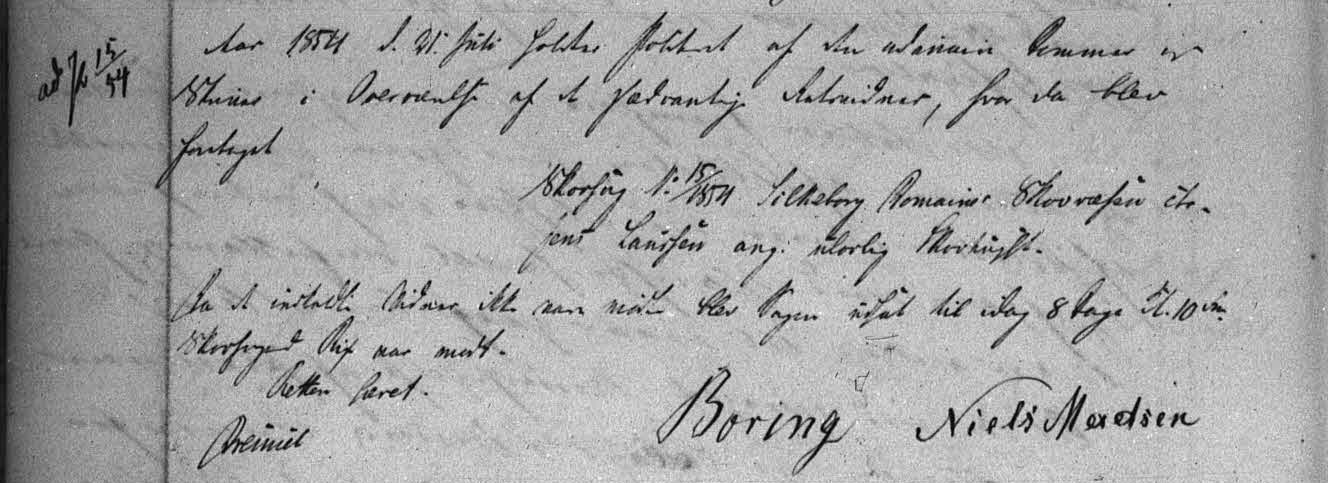 ad 15/54
Aar 1854 d. 21 Juli holdtes Politiret af den ordinaire Dommer og
Skriver i Overværelse af de sædvanlige Retsvidner, hvor da blev
foretaget
Skovsag N: 15/1854 Silkeborg Domaines Skovvæsen ctr.
Jens Laursen ang: ulovlig Skovhugst.
Da de indkaldte Vidner ikke vare mødte blev Sagen udsat til idag 8 Dage Kl. 10 Fm.
Skovfoged Rix var mødt.
Retten hævet.
Boring Niels Madsen